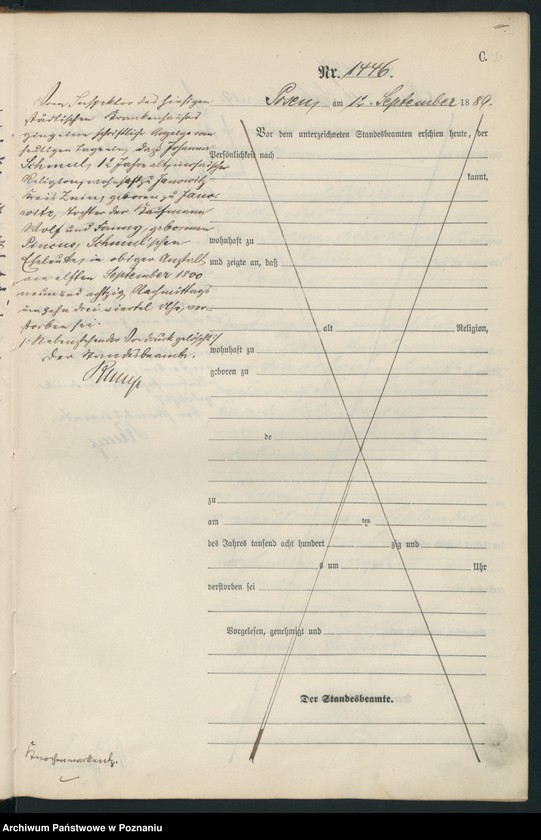 C.
Nr. 1446.
Posen, am 12. September 1889.
Vom Inspektor des hiesigen
städtischen Krankenhauses
ging eine schriftliche Anzeige vom
heutigen Tage ein, daß Johanna
Schmul, 12 Jahre alt, mosaischer
Religion, wohnhaft zu Janowitz
Kreis Znin, geboren zu Jano-
witz, Tochter der Kaufmann
Wolf und Fanny, geborenen
Pincus, Schmul'schen
Eheleute, in obiger Anstalt
am elften September 1800
neun und achtzig Nachmittags
um zehn drei viertel Uhr, ver-
storben sei.
/: Nebenstehender Vordruck gelöscht :/
Der Standesbeamte.
Vor dem unterzeichneten Standesbeamten erschien heute, der
Persönlichkeit nach
kannt,
wohnhaft zu
und zeigte an, daß
alt Religion,
wohnhaft zu
geboren zu
de
zu
am ten
des Jahres tausend acht hundert zig und
s um Uhr
verstorben sei
Vorgelesen, genehmigt und
Der Standesbeamte.
Archiwum Państwowe w Poznaniu